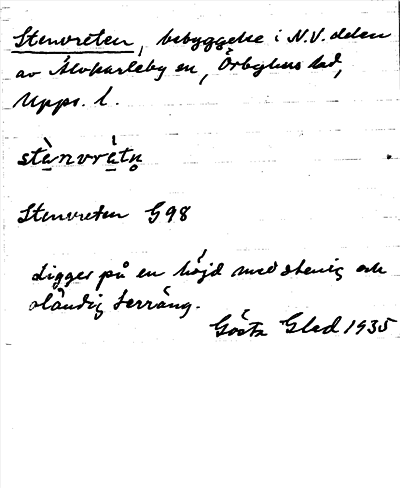 Stenvreten, bebyggelse i N.V. delen
av Älvkarleby sn, Örbyhus hd,
Upps. l.
stènvrétn̥
Stenvreten G98
Ligger på en höjd med stenig och
oländig terräng.
Gösta Gled 1935